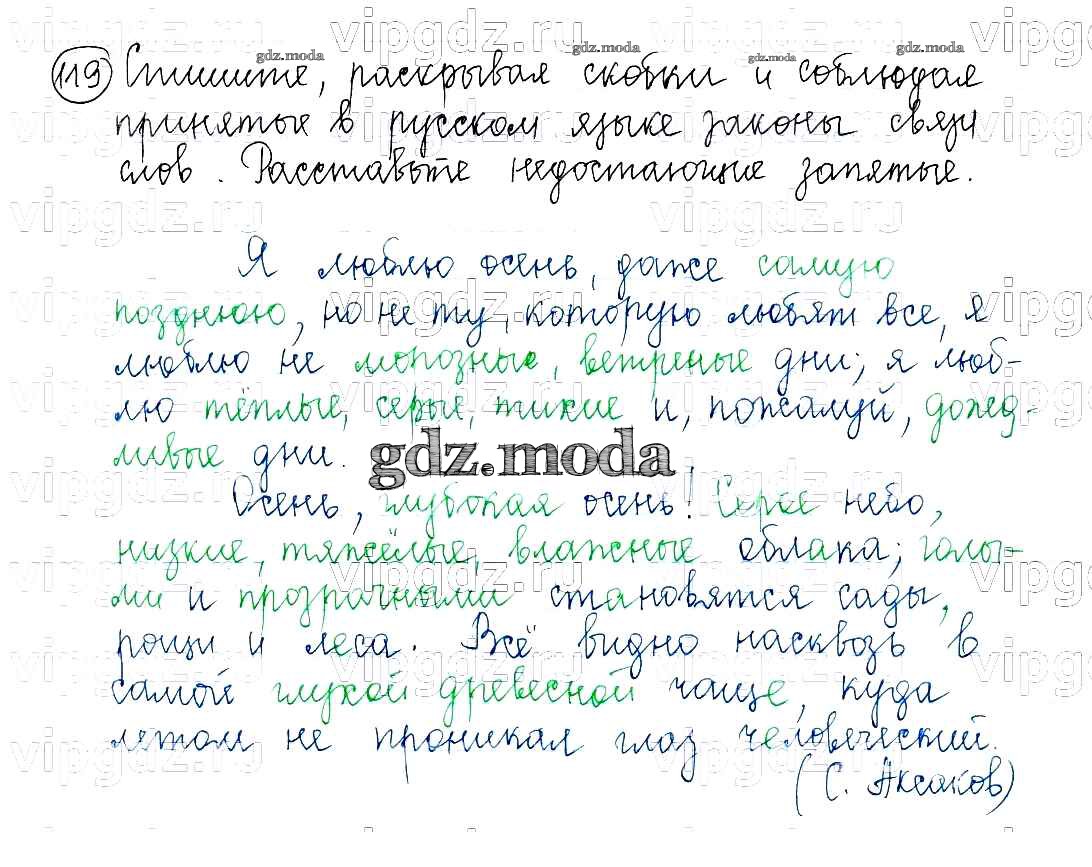 119 Спишите, раскрывая скобки и соблюдая
принятые в русском языке законы связи
слов. Расставьте недостающие запятые.
Я люблю осень, даже самую
позднюю, но не ту, которую любят все, я
люблю не морозные, ветреные дни; я люб-
лю тёплые, серые, тихие и, пожалуй, дожд-
ливые дни.
gdz.moda
Осень, глубокая осень! Серое небо,
низкие, тяжёлые, влажные облака; голы-
ми и прозрачными становятся сады,
рощи и леса. Всё видно насквозь в
самой глухой древесной чаще, куда
летом не проникал глаз человеческий.
(С. Аксаков)